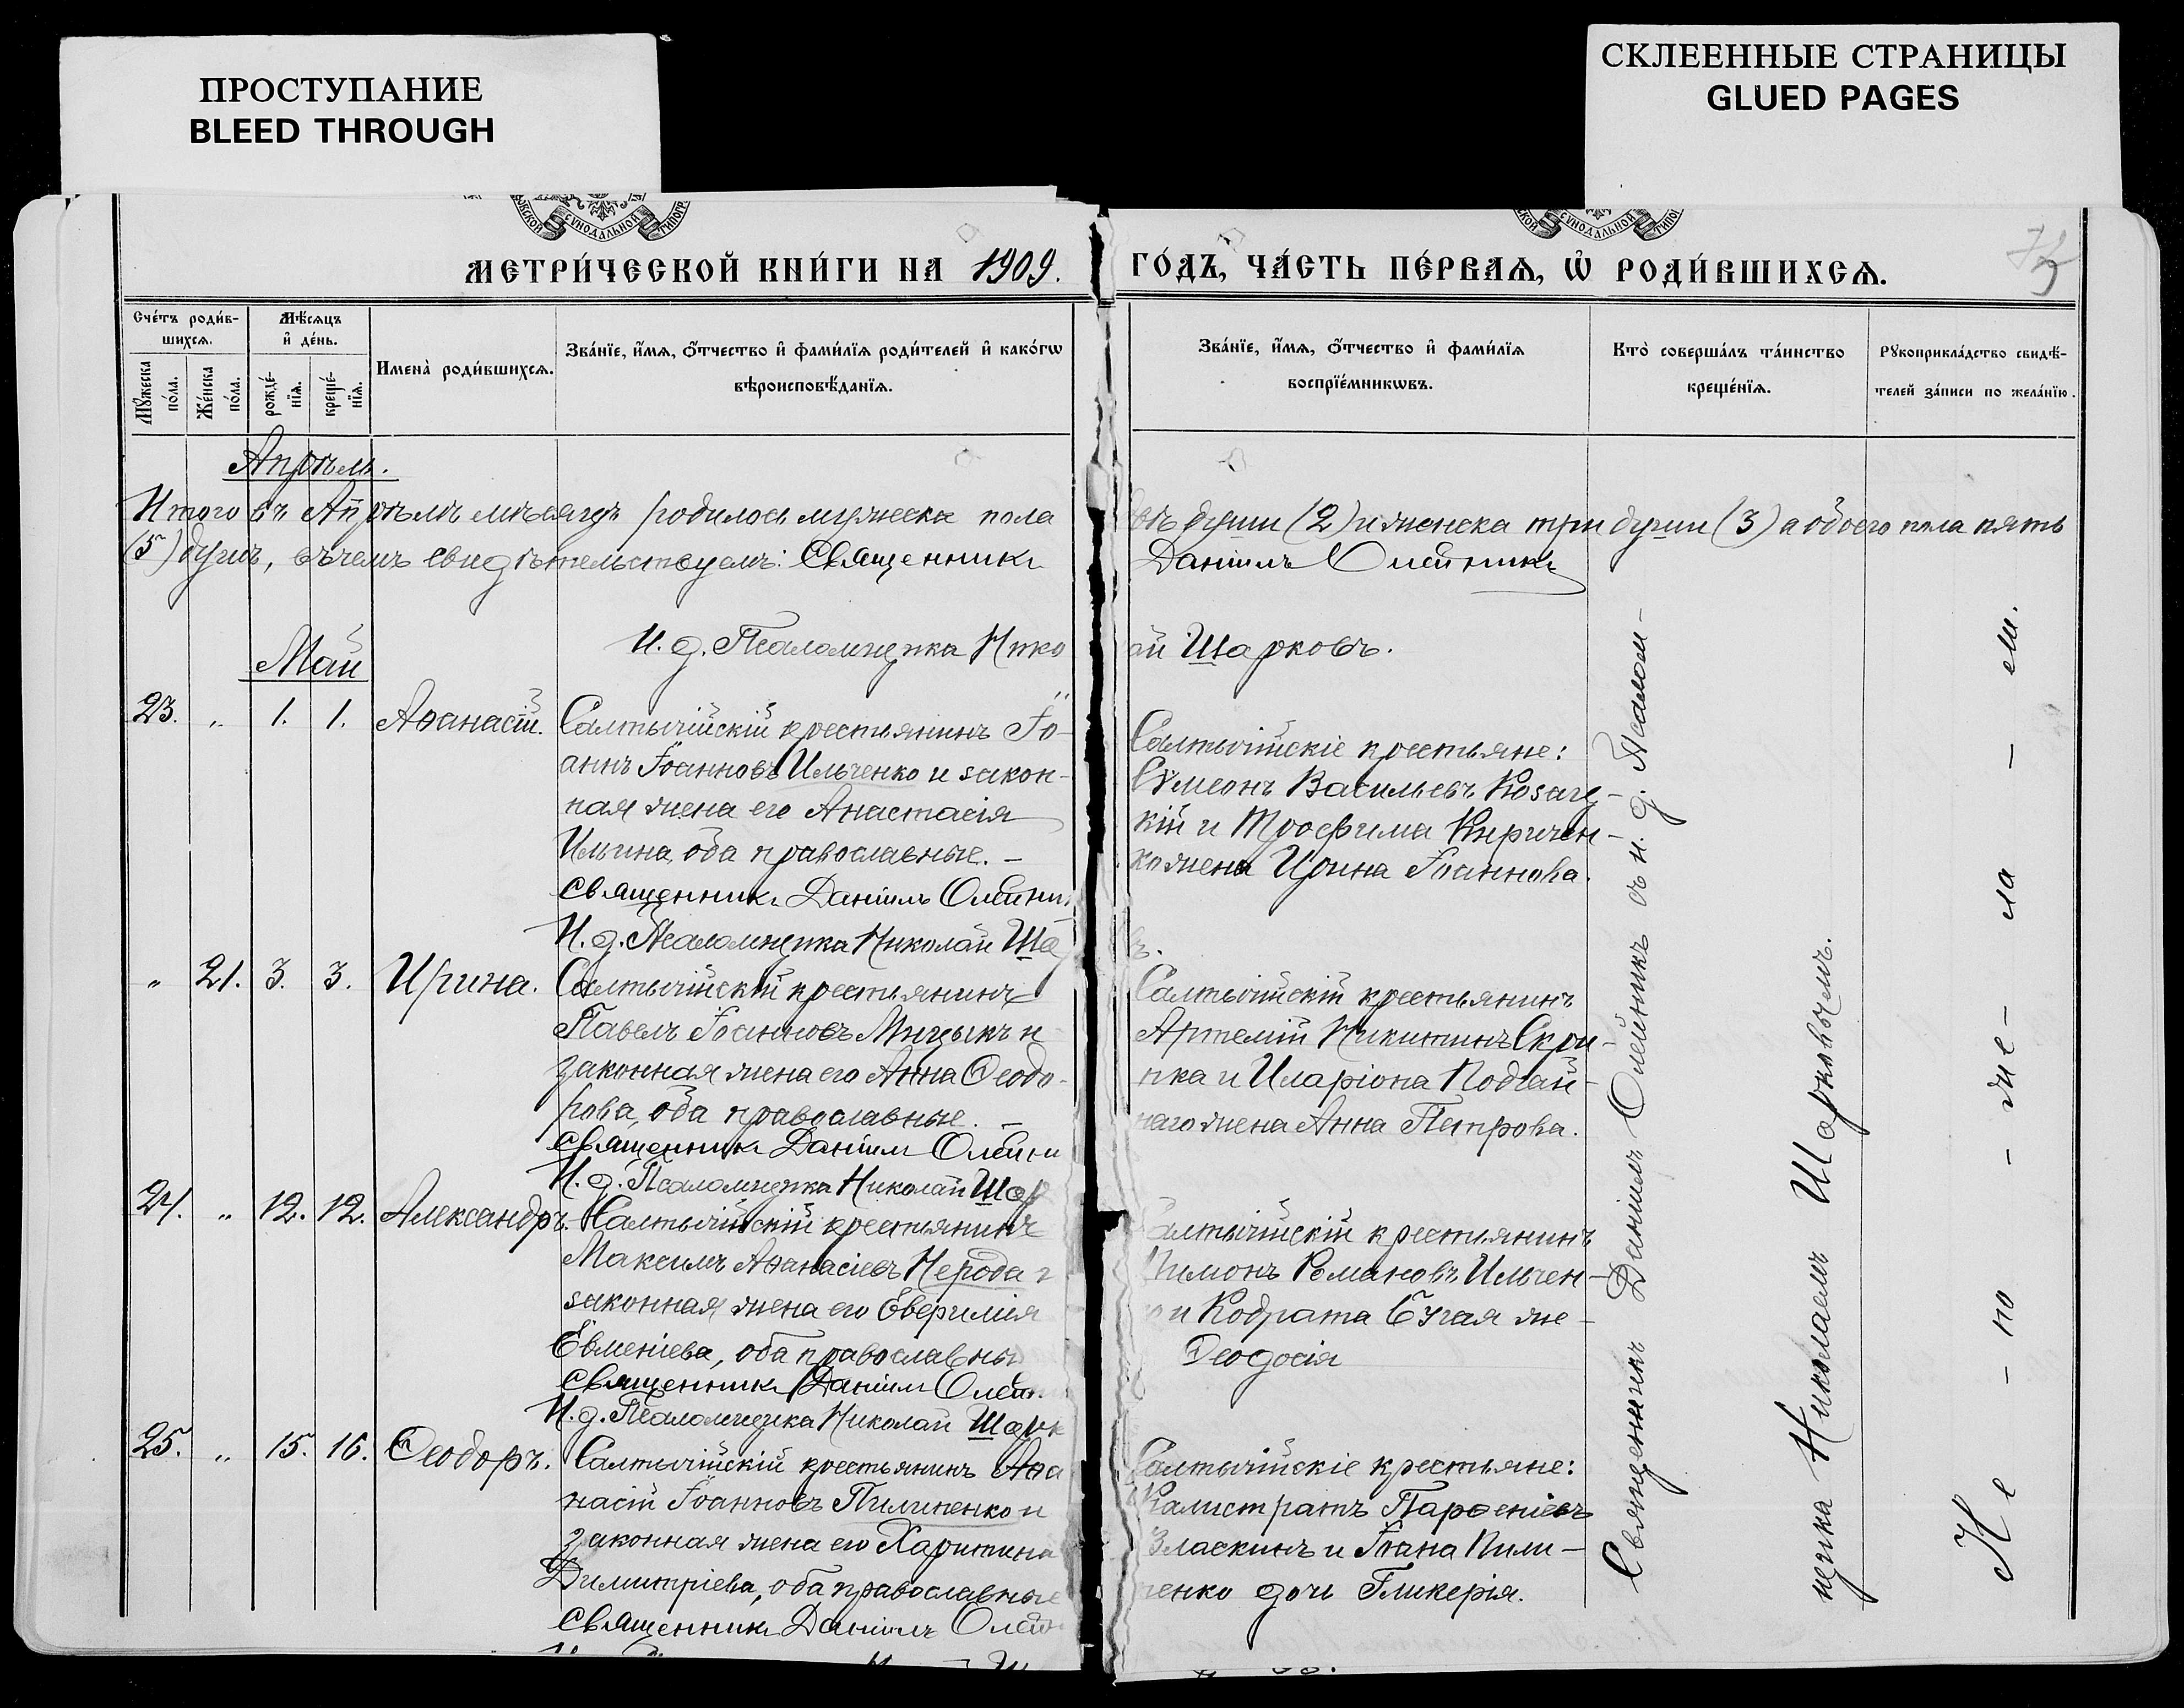 ПРОСТУПАНИЕ
BLEED THROUGH
СКЛЕЕННЫЕ СТРАНИЦЫ
GLUED PAGES
СѴНОДАЛЬНОЙ
СѴНОДАЛЬНОЙ
МЕТРИ́ЧЕСКОЙ КНИ́ГИ НА 1909.
ГО́ДЪ, ЧА́СТЬ ПЕ́РВАѦ, Ѡ҆ РОДИ́ВШИХСѦ.
Сче́тъ роди́в-
шихсѧ.
Мꙋ́жеска по́ла.
Же́нска по́ла.
Мѣ́сѧцъ
и҆ де́нь.
рожде́-
нїѧ.
креще́-
нїѧ.
Имена̀ роди́вшихсѧ.
Зва́нїе, и҆́мѧ, ѻ҆́тчество и҆ фами́лїѧ роди́телей и҆ како́гѡ
вѣроисповѣ́данїѧ.
Зва́нїе, и҆́мѧ, ѻ҆́тчество и҆ фами́лїѧ
воспрїе́мникѡвъ.
Кто̀ соверша́лъ та́инство
креще́нїѧ.
Рꙋкоприкла́дство свидѣ́-
телей за́писи по жела́нїю.
Апрѣль.
Итого въ Апрѣлѣ мѣсяцѣ родилось мужеска пола
двѣ души (2) и женска три души (3) а обоего пола пять
(5) душъ, въ чемъ свидѣтельствуемъ: Священникъ
Даніилъ Олейникъ
И. д. Псаломщика Нико
ай Шарковъ.
Май
23. „ 1. 1. Аѳанасій. Салтычійскій крестьянинъ Іо-
аннъ Іоанновъ Ильченко и закон-
ная жена его Анастасія
Ильина, оба православные. –
Священникъ Даніилъ Олейни
И. д. Псаломщика Николай Ша
Салтычійскіе крестьяне:
Сѵмеонъ Васильевъ Козаць-
кій и Трофима Киричен-
ко жена Ирина Іоаннова.
въ.
„ 21. 3. 3. Ирина. Салтычійскій крестьянинъ
Павелъ Іоанновъ Мицыкъ и
законная жена его Анна Ѳеодо-
рова, оба православные. –
Священникъ Даніилъ Олейни
И. д. Псаломщика Николай Шар
Салтычійскій крестьянинъ
Артемій Никитинъ Скри-
пка и Иларіона Подгай-
наго жена Анна Петрова.
24. „ 12. 12. Александръ. Салтычійскій крестьянинъ
Максимъ Аѳанасіевъ Нерода
законная жена его Евфимія
Евменіева, оба православны
Священникъ Даніилъ Олей
И. д. Псаломщика Николай Шарк
алтычійскій крестьянинъ
Пимонъ Романовъ Ильчен-
и Кодрата Бугая же-
Ѳеодосія
25. „ 15. 16. Ѳеодоръ. Салтычійскій крестьянинъ Аѳа
насій Іоанновъ Пилипенко и
законная жена его Харитина
Димитріева, оба православные
Священникъ Даніилъ Олей
Салтычійскіе крестьяне:
Калистратъ Парѳеніевъ
Власкинъ и Іоана Пили-
пенко дочь Гликерія.
Священникъ Даніилъ Олейникъ съ и. д. Псалом-
щика Николаемъ Шарковымъ.
Не – по – же – ла – ли.